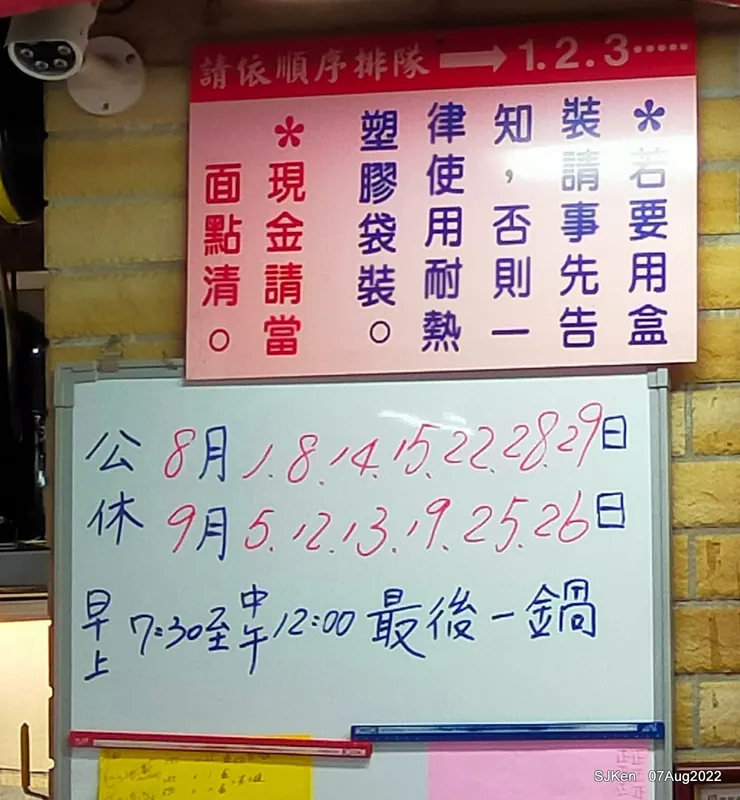 請依順序排隊→1.2.3‧‧‧‧‧
＊若要用盒
裝請事先告
知，否則一
律使用耐熱
塑膠袋裝。
＊現金請當
面點清。
公休
8月1.8.14.15.22.28.29日
9月5.12.13.19.25.26日
早上7:30至中午12:00最後一鍋
SJKen 07Aug2022